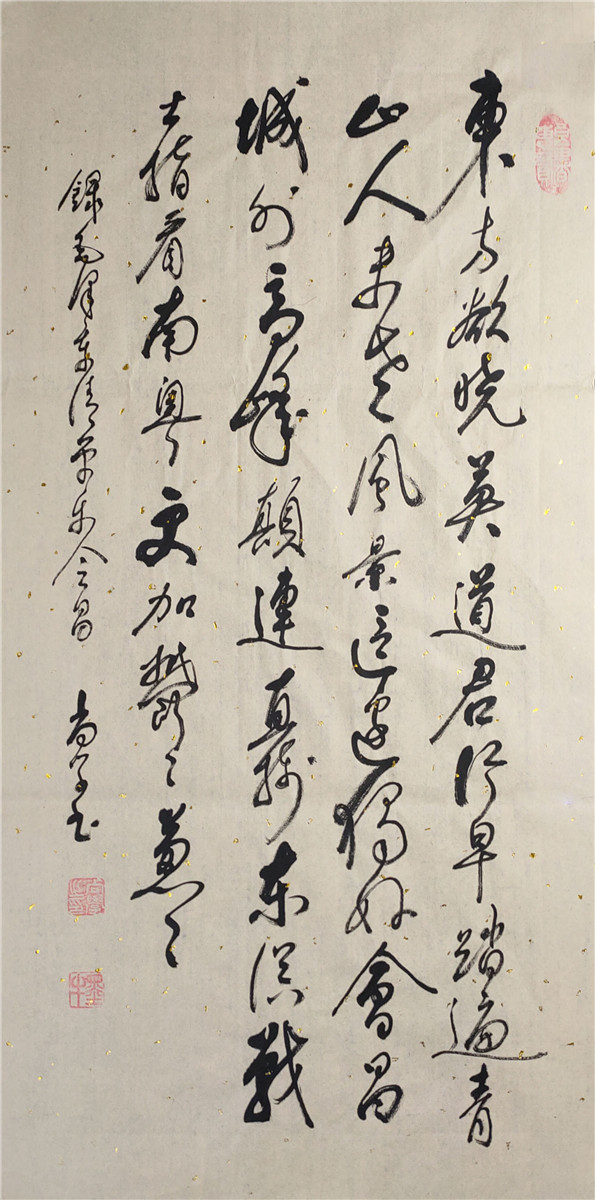 東方欲曉莫道君行早踏遍青
山人未老風景這邊獨好會昌
城外高峰顛連直接東溟戰
士指看南粵更加欝々蔥々
錄毛澤東清平樂會昌 尚学书